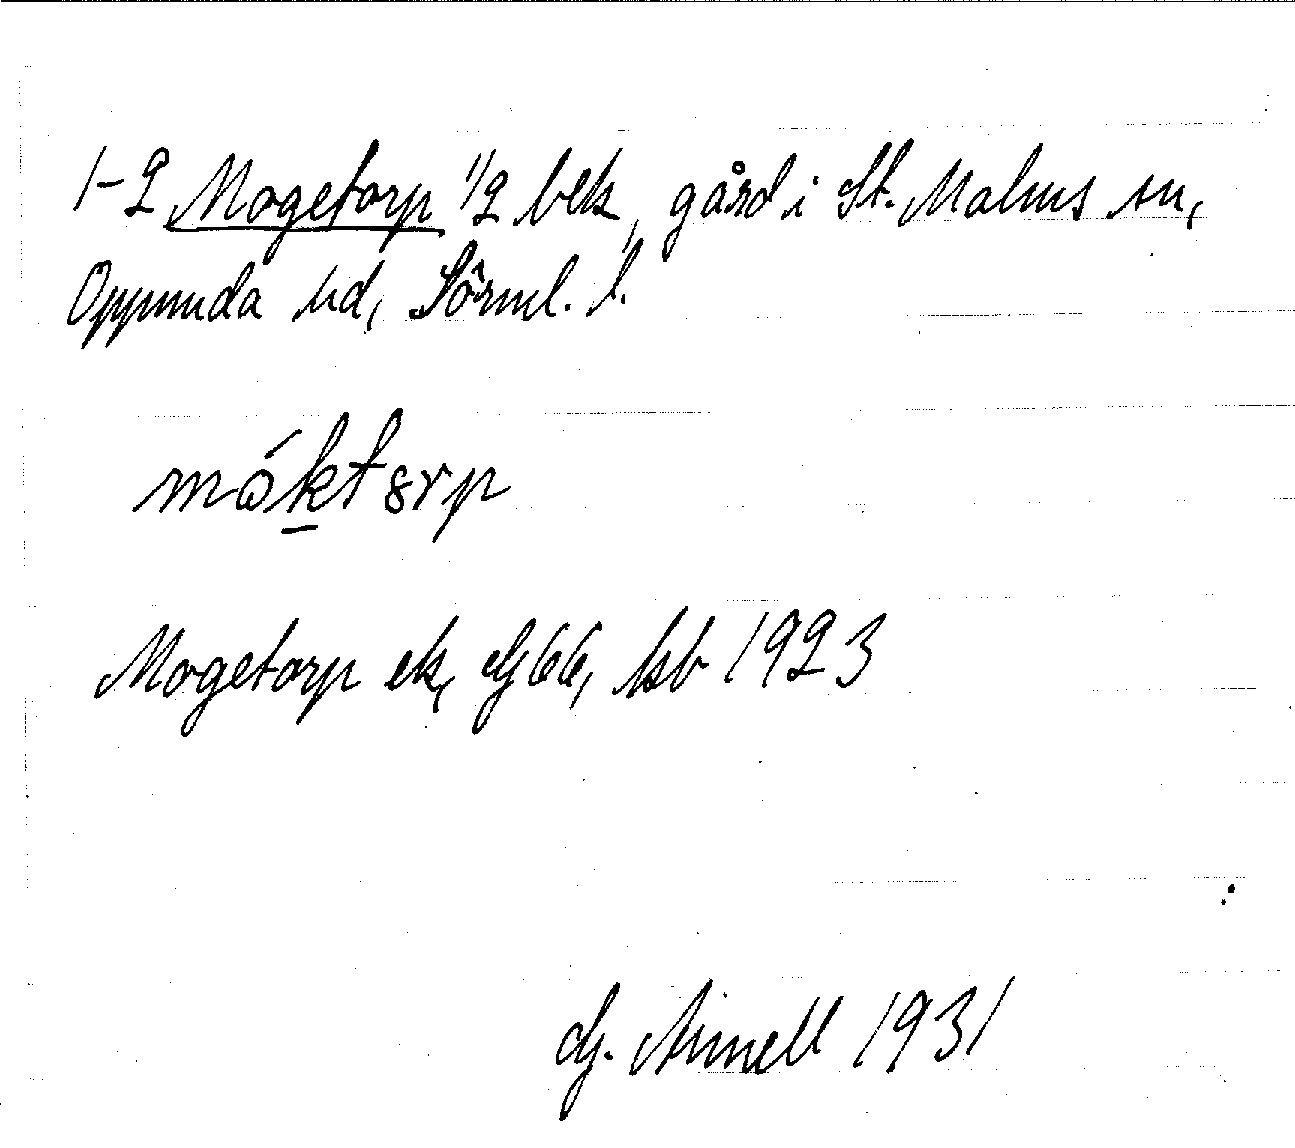 1-2 Mogetorp 1/2 bek, gård i St. Malms sn,
Oppunda hd, Sörml. l.
móktorp
Mogetorp ek, G 66, kb 1923
G. Arnell 1931